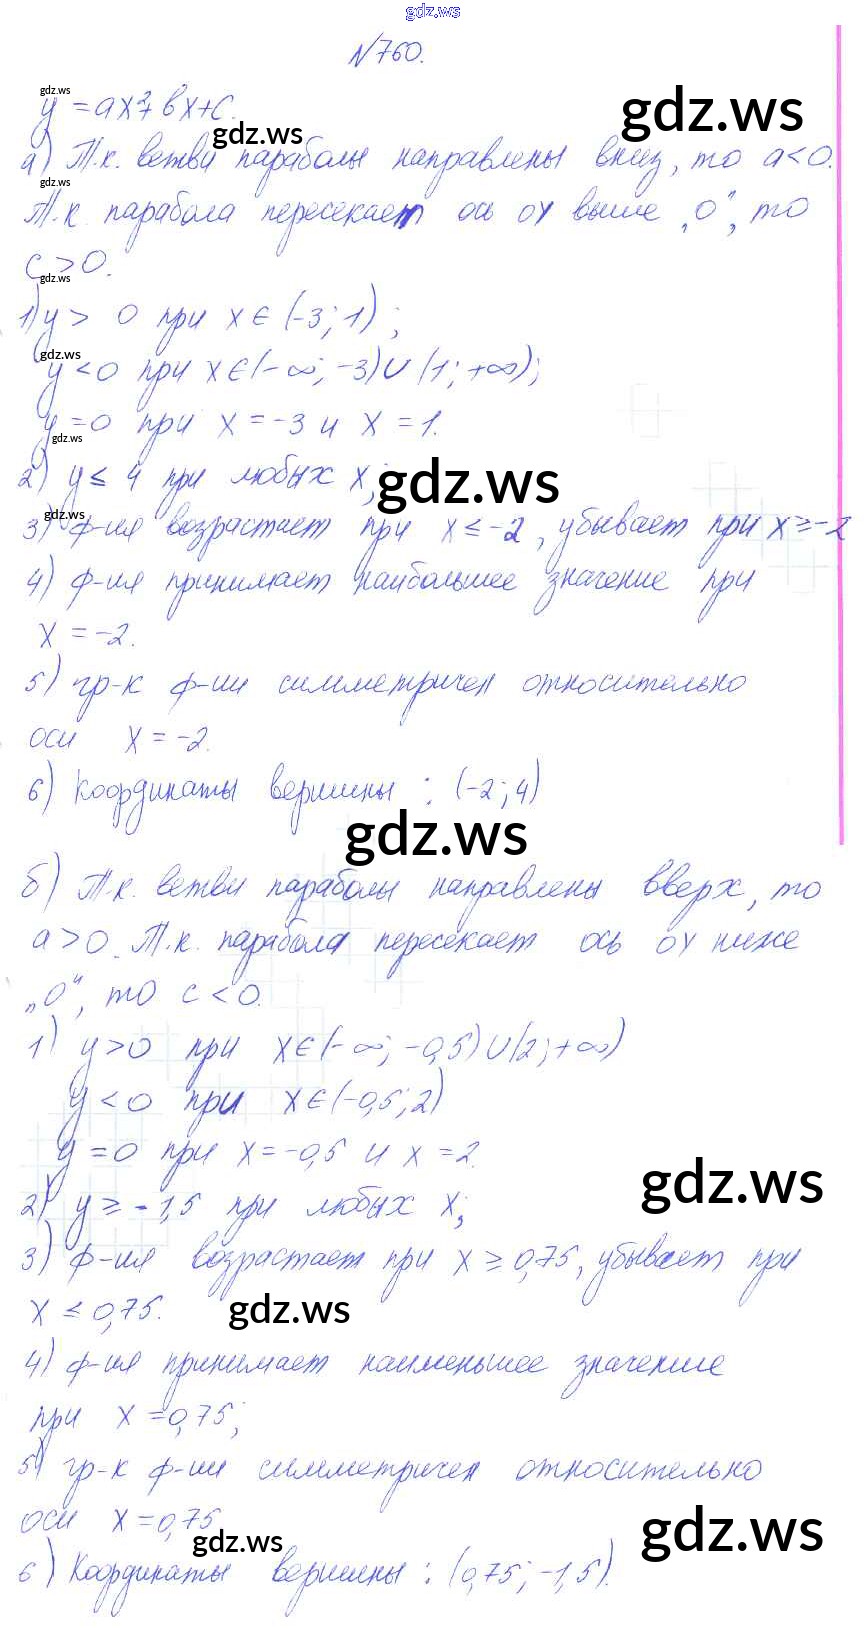 gdz.ws
№760.
gdz.ws
y = ax²+ bx+c.
gdz.ws
gdz.ws
а) Т.к. ветви параболы направлены вниз, то a<0.
gdz.ws
Т.к. парабола пересекает ось oy выше „0", то
c > 0.
gdz.ws
1) y > 0 при x ∈ (-3; 1);
gdz.ws
y < 0 при x ∈ (-∞; -3) ∪ (1; +∞);
y = 0 при x = -3 и x = 1.
gdz.ws
2) y ≤ 4 при любых x;
gdz.ws
gdz.ws
3) ф-ия возрастает при x ≤ -2, убывает при x ≥ -2
4) ф-ия принимает наибольшее значение при
x = -2.
5) гр-к ф-ии симметричен относительно
оси x = -2.
6) Координаты вершины : (-2; 4)
gdz.ws
б) Т.к. ветви параболы направлены вверх, то
a > 0. Т.к. парабола пересекает ось oy ниже
„0", то c < 0.
1) y > 0 при x ∈ (-∞; -0,5) ∪ (2; +∞)
y < 0 при x ∈ (-0,5; 2)
y = 0 при x = -0,5 и x = 2.
gdz.ws
2) y ≥ -1,5 при любых x;
3) ф-ия возрастает при x ≥ 0,75, убывает при
x ≤ 0,75.
gdz.ws
4) ф-ия принимает наименьшее значение
при x = 0,75;
5) гр-к ф-ии симметричен относительно
оси x = 0,75
gdz.ws
gdz.ws
6) Координаты вершины : (0,75; -1,5).